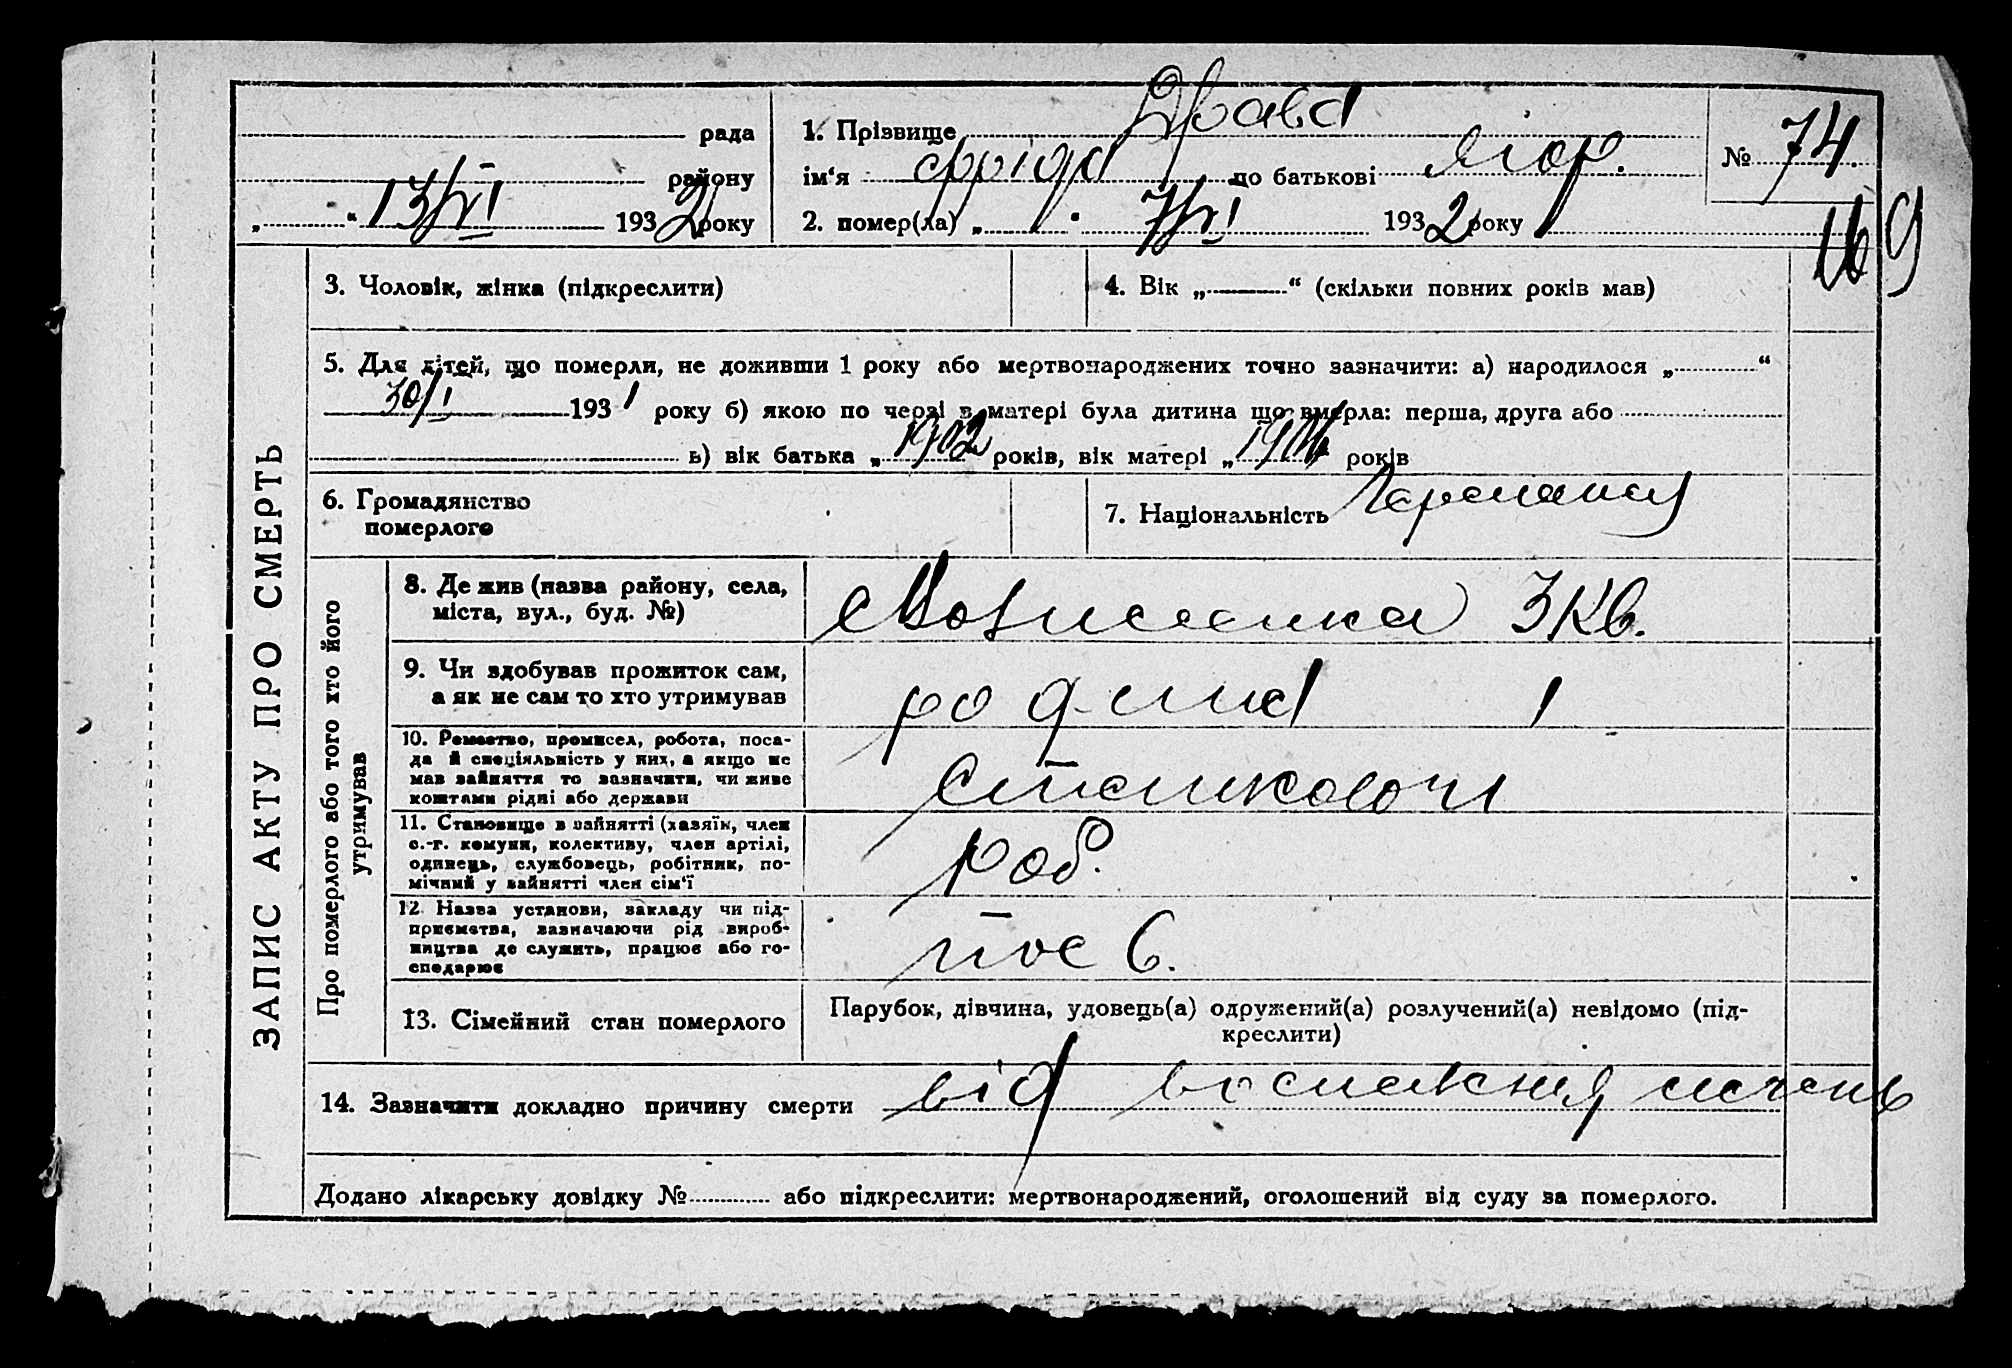 рада
1. Прізвище
№ 74.
району
ім'я Фріда по батькові
„ “ 13/VI 1932 року
2. помер(ла) „ “ 7/VI 1932 року
169
ЗАПИС АКТУ ПРО СМЕРТЬ
3. Чоловік, жінка (підкреслити)
4. Вік „ “ (скільки повних років мав)
5. Для дітей, що померли, не доживши 1 року або мертвонароджених точно зазначити: а) народилося „ “
30/I 1931 року б) якою по черзі в матері була дитина що вмерла: перша, друга або
в) вік батька „ 1902 років, вік матері „ років
6. Громадянство
померлого
7. Національність
Про померлого або того хто його
утримував
8. Де жив (назва району, села,
міста, вул., буд. №)
3 Кв.
9. Чи здобував прожиток сам,
а як не сам то хто утримував
родина
10. Ремество, промисел, робота, поса-
да й спеціяльність у них, а якщо не
мав зайняття то зазначити, чи живе
коштами рідні або держави
11. Становище в зайнятті (хазяїн, член
с.-г. комуни, колективу, член артілі,
одинець, службовець, робітник, по-
мічний у зайнятті член сім'ї
роб.
12. Назва установи, закладу чи під-
приємства, зазначаючи рід вироб-
ництва де служить, працює або го-
сподарює
13. Сімейний стан померлого
Парубок, дівчина, удовець(а) одружений(а) розлучений(а) невідомо (під-
креслити)
14. Зазначити докладно причину смерти від
Додано лікарську довідку № або підкреслити: мертвонароджений, оголошений від суду за померлого.